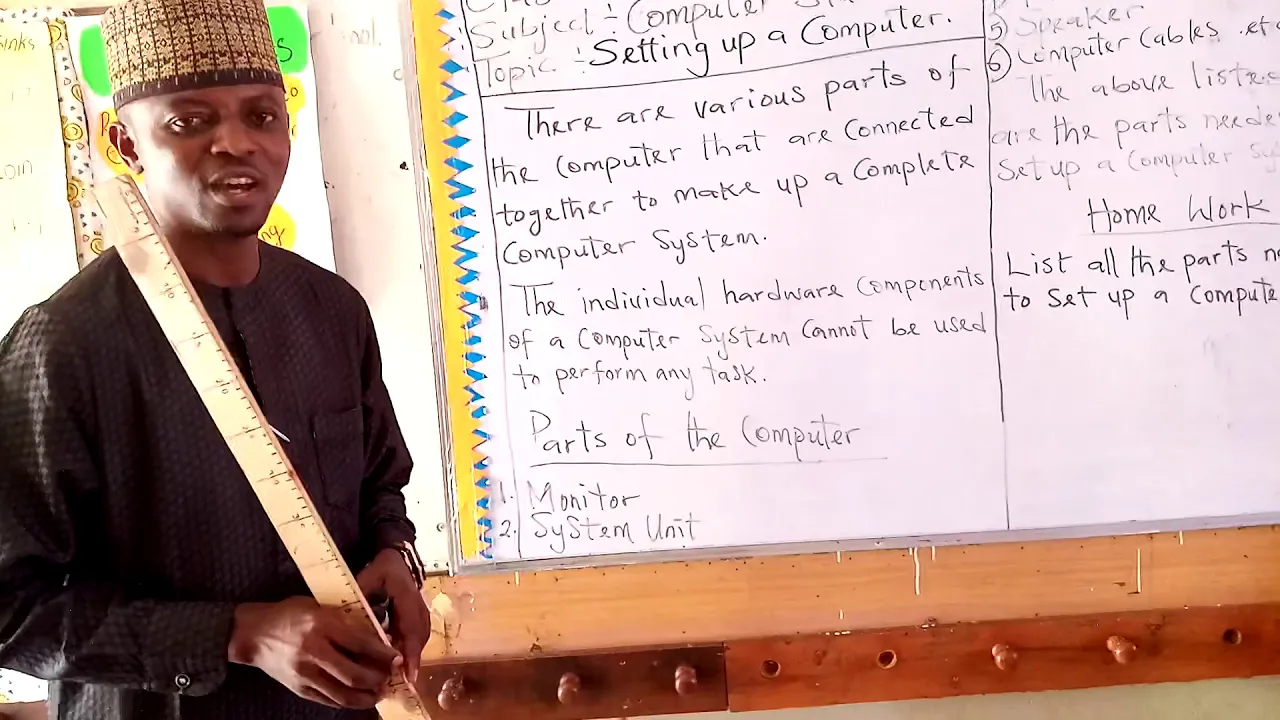 Subject :- Computer
Topic :- Setting up a Computer.
There are various parts of
the computer that are connected
together to make up a complete
Computer System.
The individual hardware components
of a computer system cannot be used
to perform any task.
Parts of the Computer
1. Monitor
2. System Unit
5) Speaker
6) Computer Cables
The above
are the parts
Set up a Computer
Home Work
List all the parts
to set up a